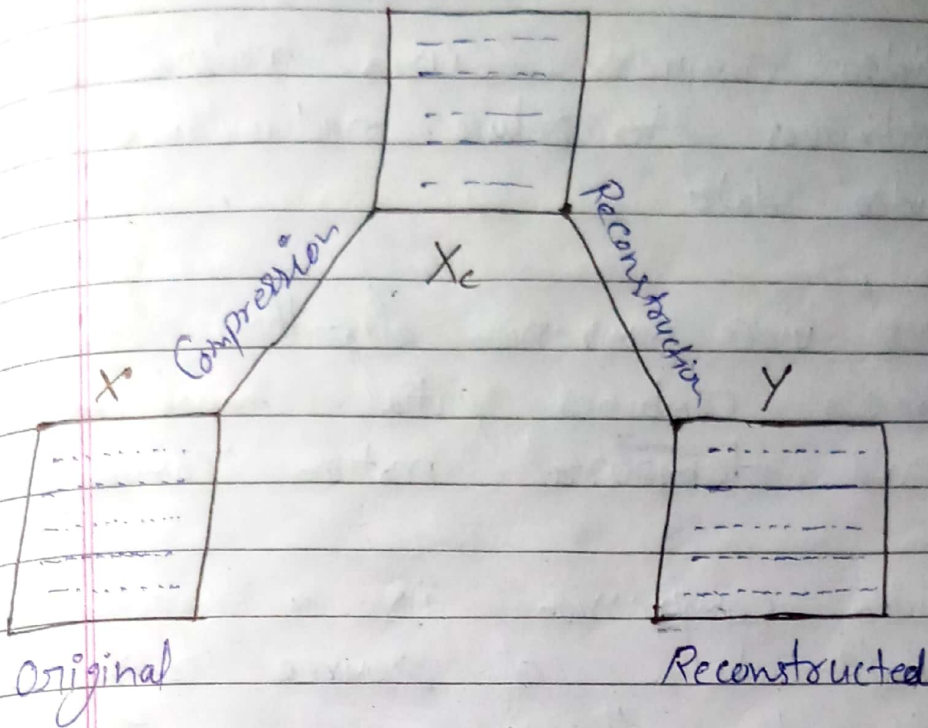 Compression
Reconstruction
Xc
X
Y
Original
Reconstructed